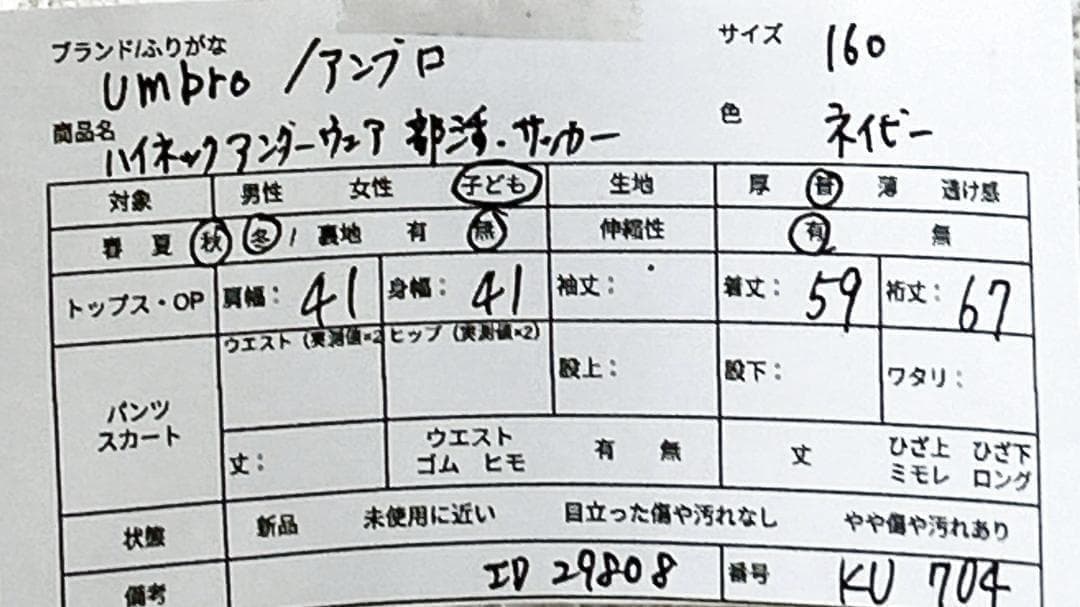 ブランド/ふりがな サイズ 160
umbro /アンブロ
商品名 色 ネイビー
ハイネックアンダーウェア 部活・サッカー
対象 男性 女性 子ども 生地 厚 普 薄 透け感
春 夏 秋 冬 / 裏地 有 無 伸縮性 有 無
トップス・OP 肩幅: 41 身幅: 41 袖丈: 着丈: 59 裄丈: 67
ウエスト (実測値×2 ヒップ (実測値×2)
パンツ 股上: 股下: ワタリ:
スカート 丈: ウエスト 有 無 丈 ひざ上 ひざ下
ゴム ヒモ ミモレ ロング
状態 新品 未使用に近い 目立った傷や汚れなし やや傷や汚れあり
備考 ID 29808 番号 KU 704